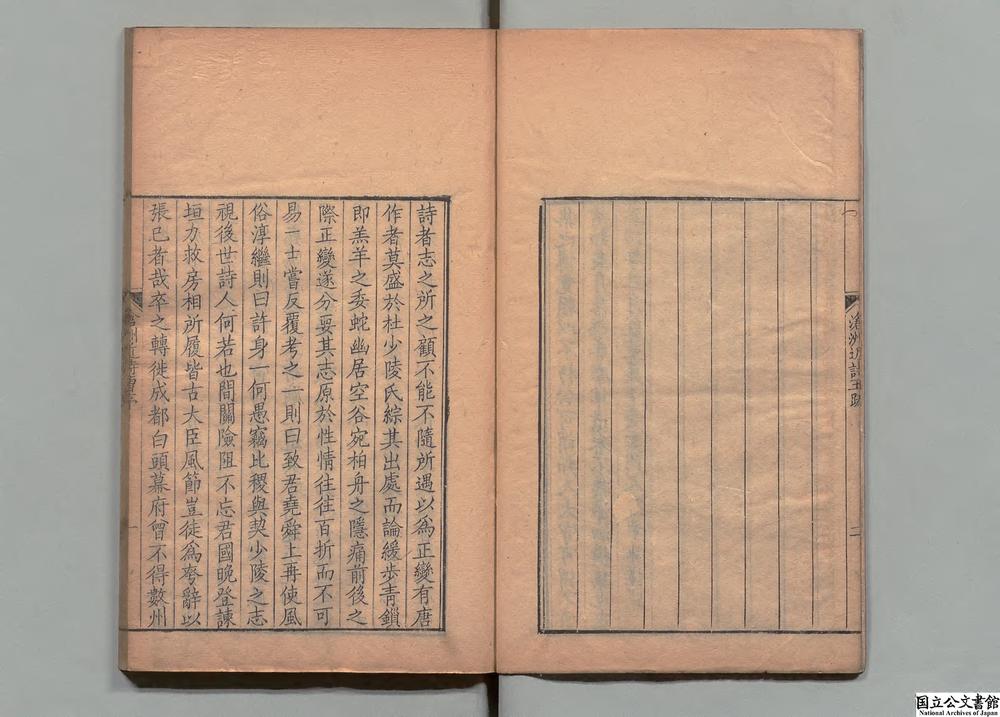 滄洲近詩王
二
詩者志之所之顧不能不隨所遇以爲正變有唐
作者莫盛於杜少陵氏綜其出處而論緩步青鎖
即羔羊之委蛇幽居空谷宛柏舟之隱痛前後之
際正變遂分要其志原於性情往往百折而不可
易一士嘗反覆考之一則曰致君堯舜上再使風
俗淳繼則曰許身一何愚竊比稷與契少陵之志
視後世詩人何若也間關險阻不忘君國晚登諫
垣力救房相所履皆古大臣風節豈徒爲夸辭以
張已者哉卒之轉徙成都白頭幕府曾不得數州
一
国立公文書館
National Archives of Japan